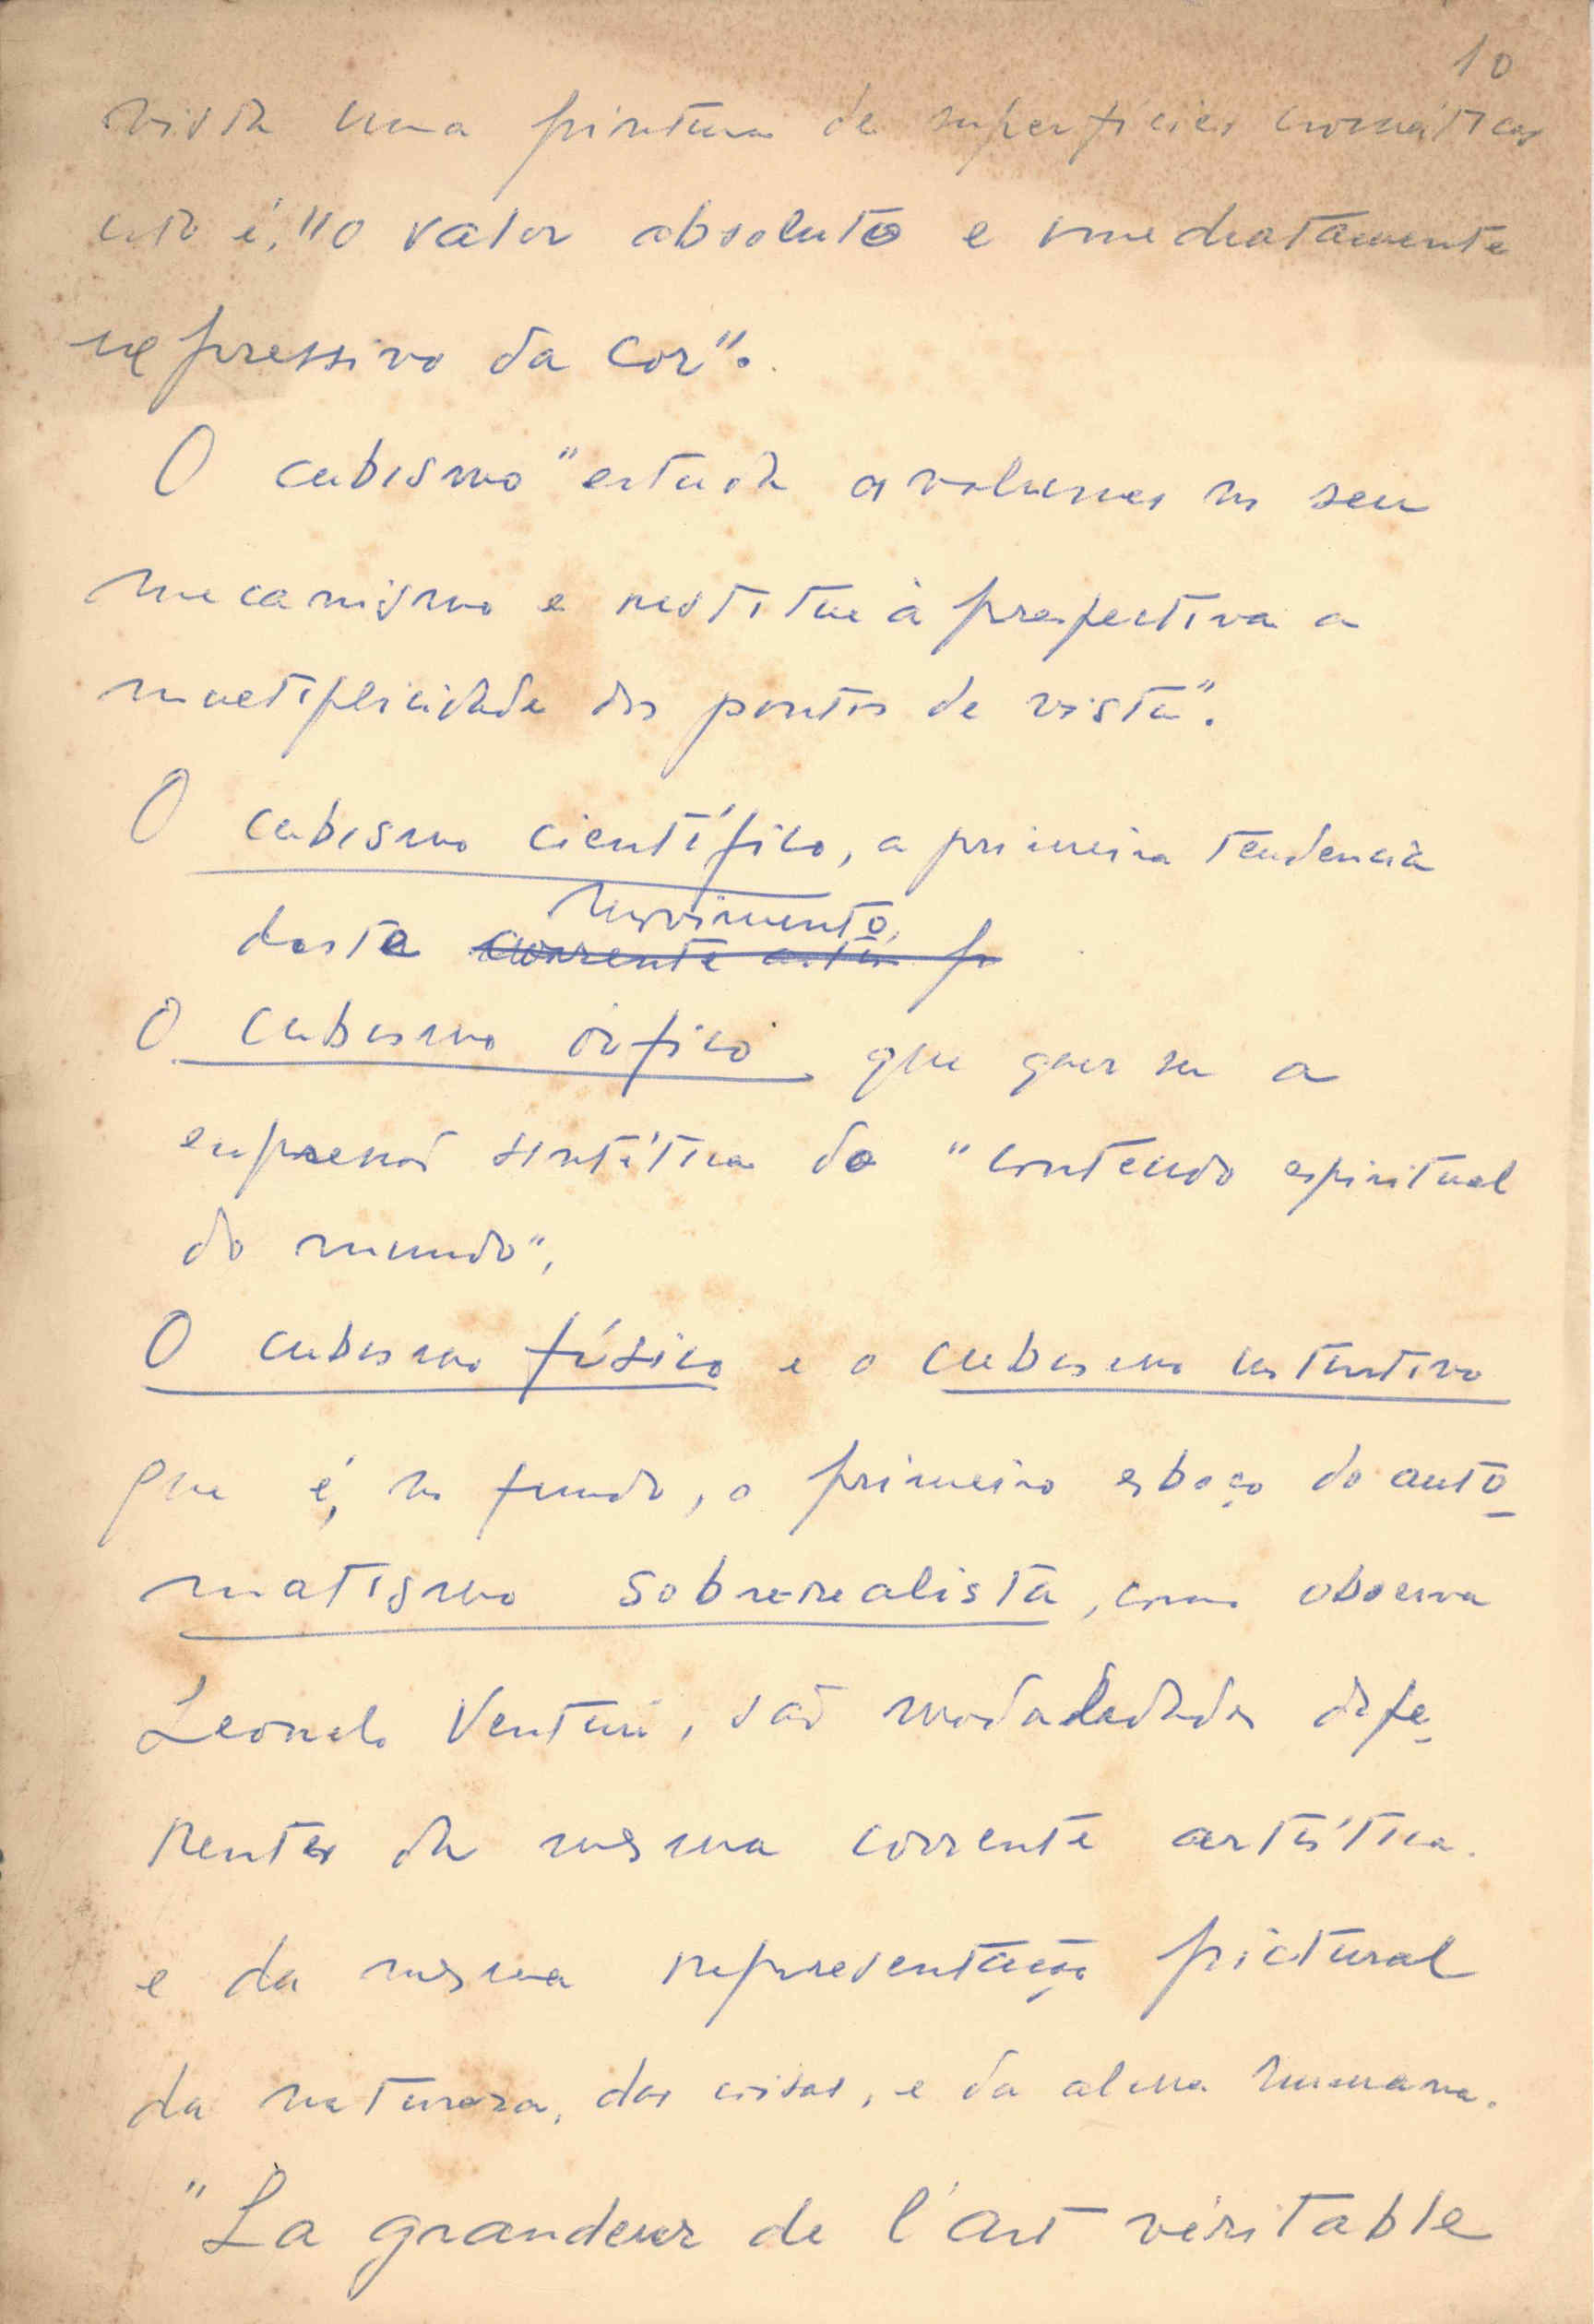 10
vista uma pintura de superfícies cromáticas
isto é, "o valor absoluto e imediatamente
expressivo da cor".
O cubismo "estuda os volumes no seu
mecanismo e restitue à prespectiva a
multiplicidade dos pontos de vista".
O cubismo científico, a primeira tendencia
movimento,
deste corrente artis p
O cubismo órfico que quer ser a
expressão sintética do "conteudo espiritual
do mundo",
O cubismo físico e o cubismo instintivo
que é, no fundo, o primeiro esboço do auto
matismo sobrerealista, como observa
Leonelo Venturi, são modalidades dife-
rentes da mesma corrente artística.
e da mesma representação pictural
da natureza, das coisas, e da alma humana.
"La grandeur de l'art véritable